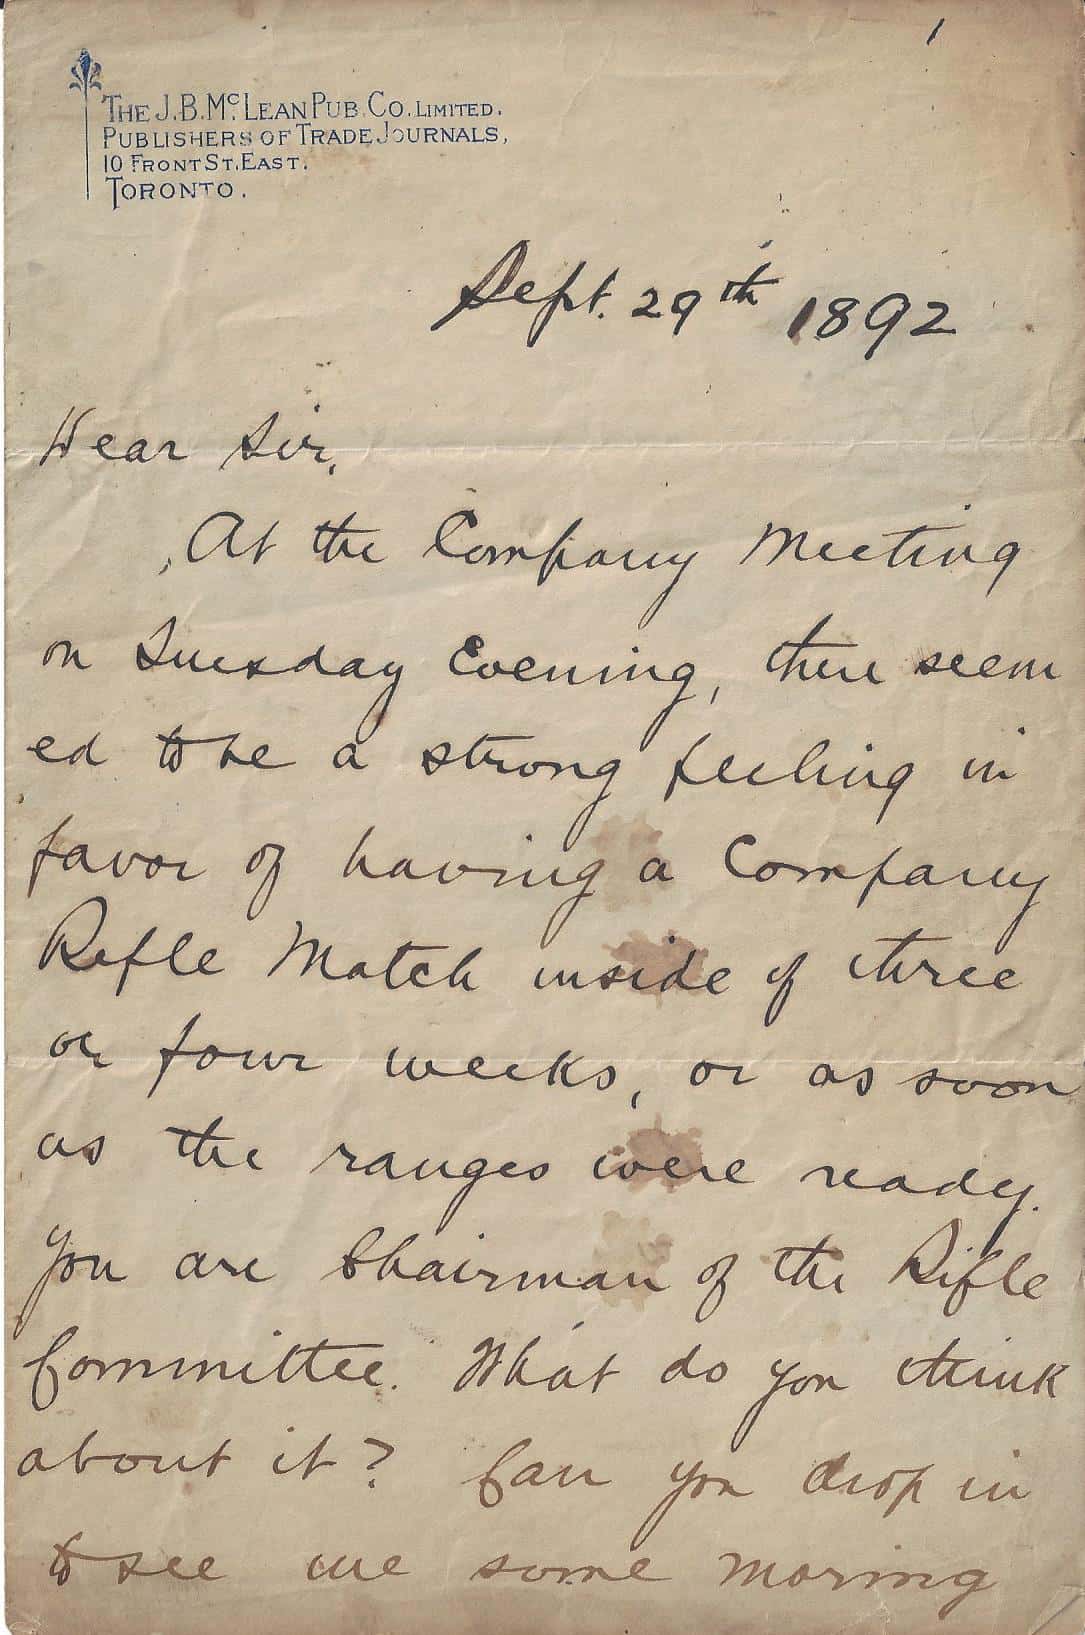 1
THE J.B. McLEAN PUB. CO. LIMITED.
PUBLISHERS OF TRADE JOURNALS,
10 FRONT ST. EAST.
TORONTO.
Sept. 29th 1892
Dear Sir,
At the Company Meeting
on Tuesday Evening, there seem
ed to be a strong feeling in
favor of having a Company
Rifle Match inside of three
or four weeks, or as soon
as the ranges were ready.
You are Chairman of the Rifle
Committee. What do you think
about it? Can you drop in
to see me some morning